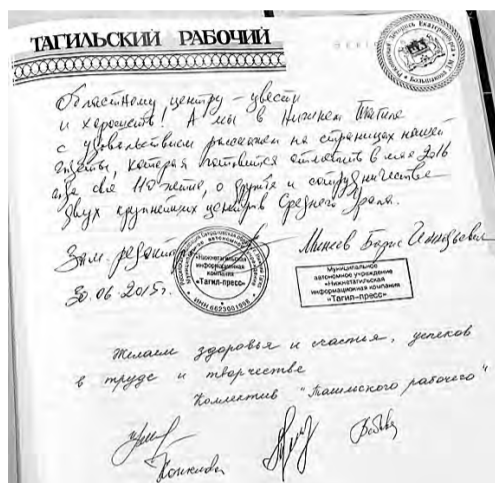 ТАГИЛЬСКИЙ РАБОЧИЙ
Областному центру – цвести
и хорошеть! А мы в Нижнем Тагиле
с удовольствием расскажем на страницах нашей
газеты, которая готовится отметить в мае 2016
года свое 110-летие, о дружбе и сотрудничестве
двух крупнейших центров Среднего Урала.
Зам. редактора
Минеев Борис
30.06.2015г.
«Нижнетагильская
информационная
компания
«Тагил-пресс»
ИНН 6623001998
Муниципальное
автономное учреждение
«Нижнетагильская
информационная компания
«Тагил-пресс»
Желаем здоровья и счастья, успехов
в труде и творчестве
Коллектив "Тагильского рабочего"